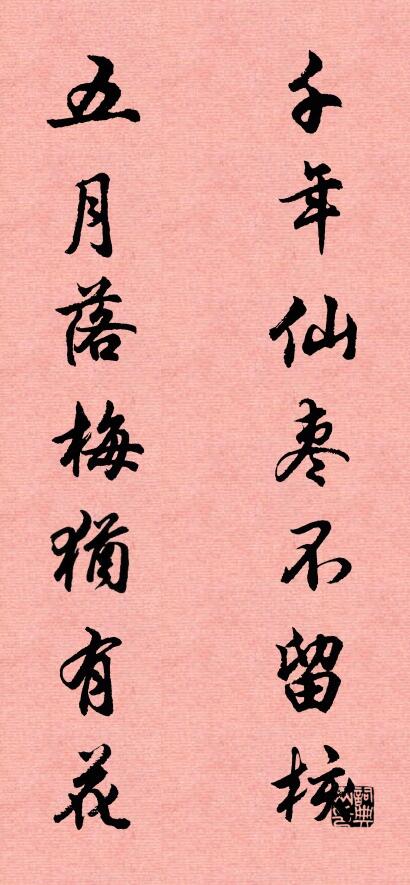 千年仙枣不留核
五月落梅犹有花